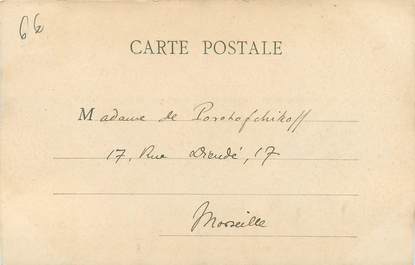 66
CARTE POSTALE
Madame de Porohofchikoff
17, Rue Dieudé, 17
Marseille